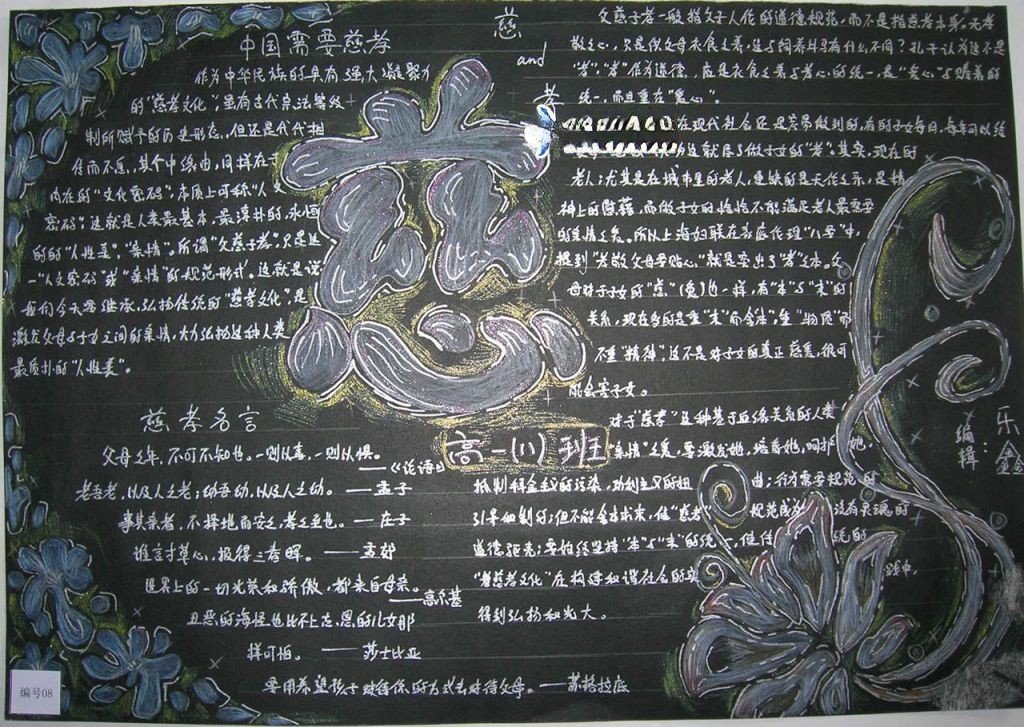 中国需要慈孝
作为中华民族的具有强大凝聚力
的"慈孝文化",虽有古代宗法等级
制所赋予的历史形态,但还是代代相
传而不息,其个中缘由,同样在于
内在的"文化密码",本质上可称"人文
密码",这就是人类最基本、最淳朴的、永恒
的的"人性美","亲情"。所谓"父慈子孝",只是这
一"人文密码"或"亲情"的规范形式。这就是说
我们今天要继承、弘扬传统的"慈孝文化",是
激发父母与子女之间的亲情,大力弘扬这种人类
最质朴的"人性美"。
慈
and
孝
慈
高一(11)班
父慈子孝一般指父子人伦的道德规范,而不是指慈孝本身。无孝
敬之心,只是供父母衣食之养,这与饲养牛马有什么不同?孔子认为这不是
"孝"。"孝"作为道德,应是衣食之养与孝心的统一,是"爱心"与赡养的
统一,而且重在"爱心"。
在现代社会还是容易做到的,有的子女每月、每年可以给
为这就尽了做子女的"孝"。其实,现在的
老人,尤其是在城市里的老人,更缺的是天伦之乐,是精
神上的慰藉,而做子女的恰恰不能满足老人最需要
的亲情之爱。所以上海妇联在家庭伦理"八要"中,
提到"孝敬父母要贴心",就是突出了"孝"之本。父
母对子女的"慈"(爱)也一样,有"本"与"末"的
关系,现在多的是重"末"而舍本",重"物质"而
不重"精神",这不是对子女的真正慈爱,很可
能会害子女。
对于"慈孝"这种基于血缘关系的人类
"亲情"之爱,要激发她,培养她,呵护她,
抵制拜金主义的污染,功利主义的扭曲;行为需要规范的
引导和制约,但不能舍本求末,使"慈孝"规范成为没有灵魂的
道德躯壳;要始终坚持"本"与"末"的统一,使传统的
"慈孝文化"在构建和谐社会的实践中,
得到弘扬和光大。
慈孝名言
父母之年,不可不知也。一则以喜,一则以惧。
——《论语》
老吾老,以及人之老;幼吾幼,以及人之幼。——孟子
事其亲者,不择地而安之,孝之至也。——庄子
谁言寸草心,报得三春晖。——孟郊
世界上的一切光荣和骄傲,都来自母亲。
——高尔基
丑恶的海怪也比不上忘恩的儿女那
样可怕。——莎士比亚
要用希望孩子对待你的方式去对待父母。——苏格拉底
编辑:乐鑫
编号08